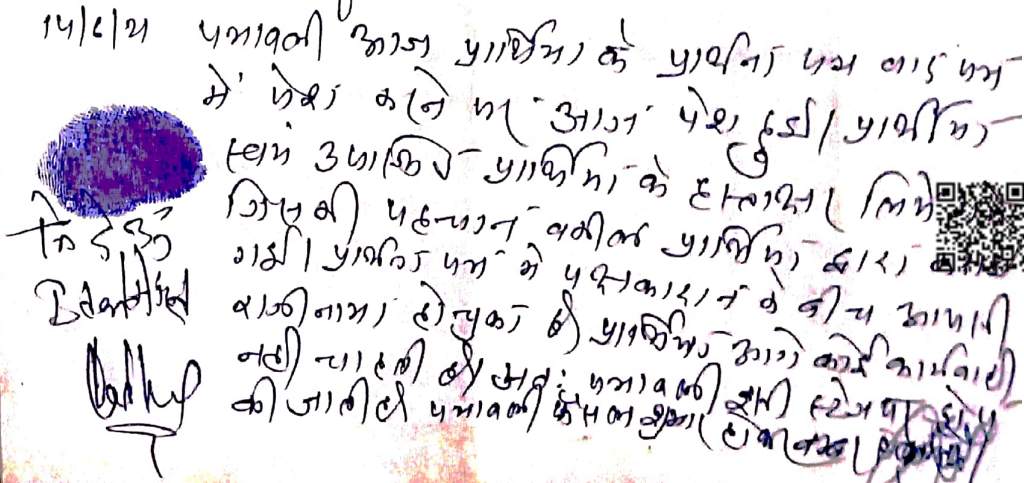 14/6/21 पत्रावली आज प्रार्थिया के प्रार्थना पत्र वाद पत्र
में पेश करने पर आज पेश हुई। प्रार्थीया
स्वयं उपस्थित प्रार्थिया के हस्ताक्षर लिये
जिसकी पहचान वकील प्रार्थिया द्वारा
गई। प्रार्थना पत्र में पक्षकारान के बीच आपसी
Identified राजीनामा हो चुका है। प्रार्थिया आगे कोई कार्यवाही
नहीं चाहती है। अतः पत्रावली इसी स्टेज पर
की जाती है। पत्रावली फैसल शुमार होकर